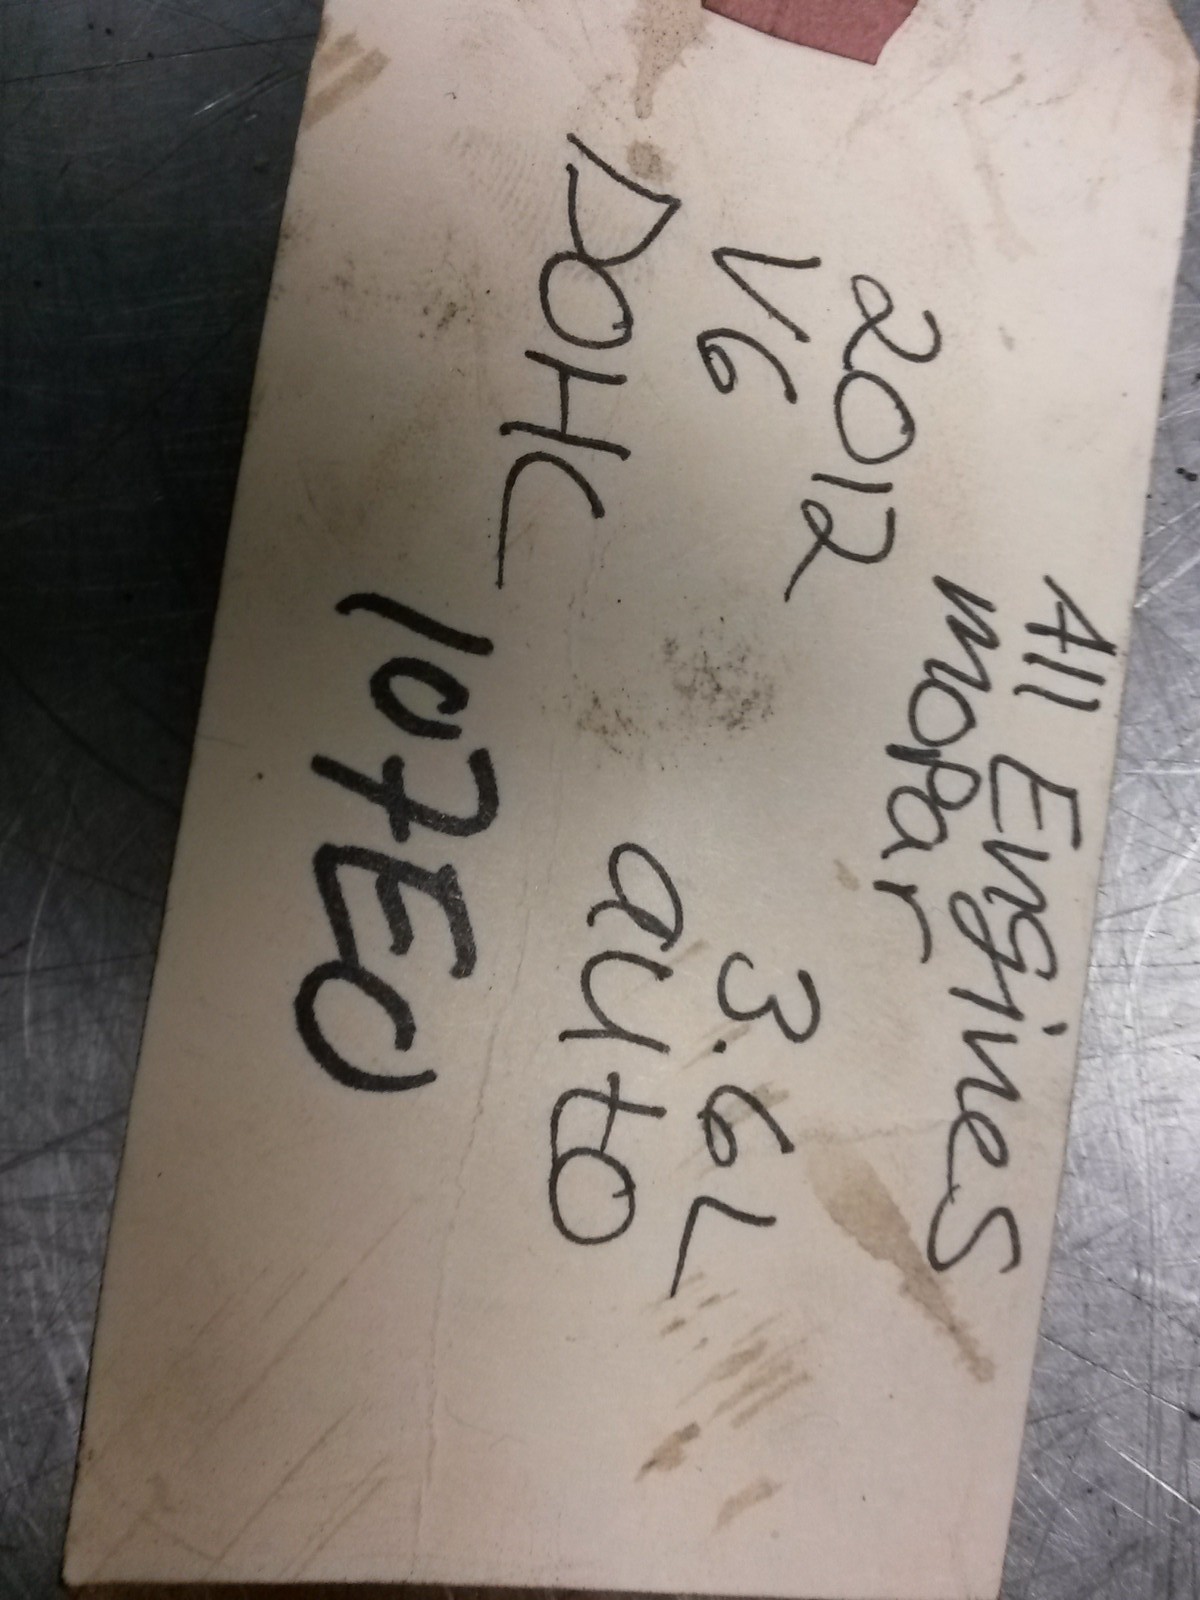 All Engines
mopar
2012
V6 3.6L
DOHC auto
107EO